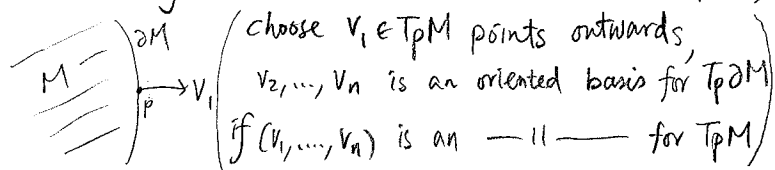 ∂M
M
p
V₁
(choose V₁ ∈ TpM points outwards,
V₂, ..., Vn is an oriented basis for Tp∂M
if (V₁, ..., Vn) is an —||— for TpM)